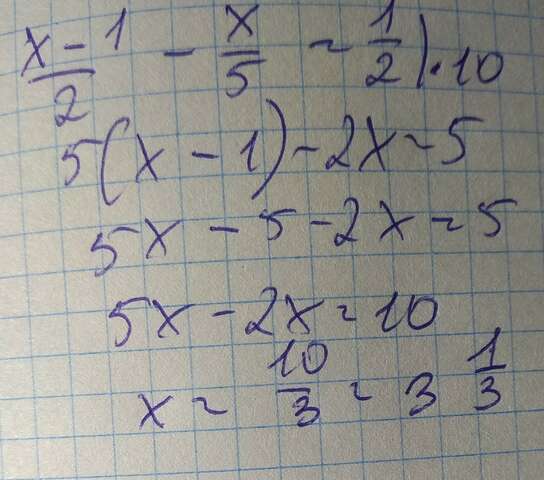 x - 1 / 2 - x / 5 = 1 / 2 | · 10
5(x - 1) - 2x = 5
5x - 5 - 2x = 5
5x - 2x = 10
x = 10 / 3 = 3 1 / 3